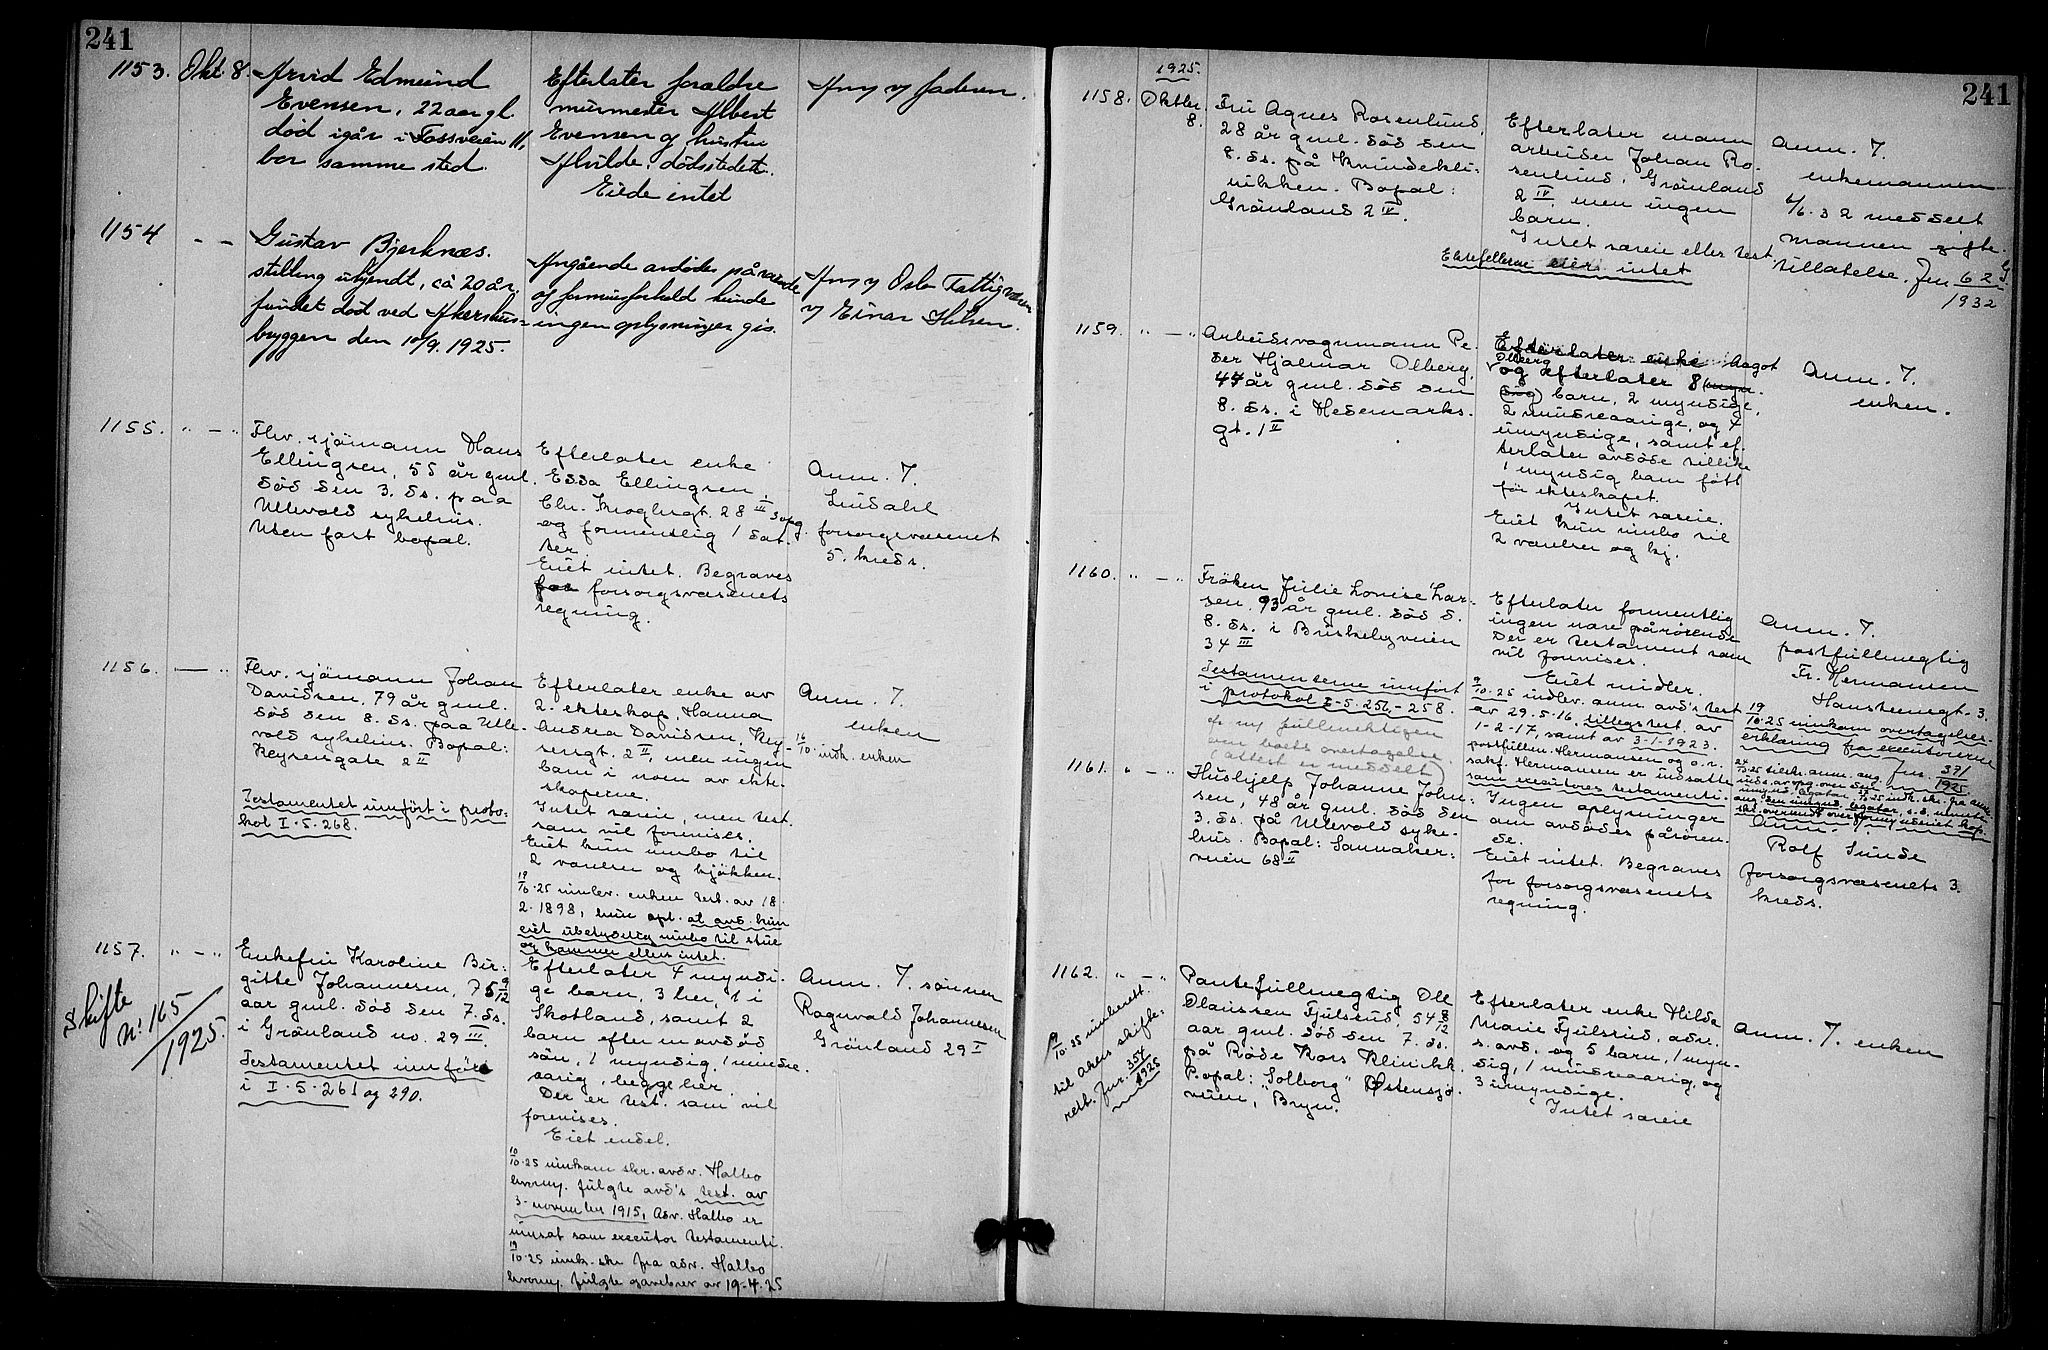 241
1153. Okt. 8. Arvid Edmund
Evensen, 22 aar gl.
død igår i Fossveien 11,
bor samme sted.
Efterlater forældre
murmester Albert
Evensen og hustru
dødsstedet.
Eiede intet
Anm. v/ faderen.
1154 - - Gustav Bjerknæs.
stilling ukjendt, ca 20 år.
fundet død ved Akershus-
bryggen den 10/9. 1925.
Angående avdødes pårørende
og formuesforhold kunde
ingen oplysninger gis.
Anm. v/ Oslo Fattigvæsen
v/ Einar
1155. " - " Fhv. sjömann Hans
Ellingsen, 55 år gml.
död den 3. ds. paa
Ullevold sykehus.
Uten fast bopæl.
Efterlater enke
Edda Ellingsen,
Chr. Kroghsgt. 28 III opg.
og formentlig 1 dat-
ter.
Eiet intet. Begraves
for forsorgsvæsenets
regning.
Anm. F.
Lindahl
forsorgsvæsenet
5. kreds.
1156. — " Fhv. sjömann Johan
Davidsen, 79 år gml.
död den 8. ds. paa Ulle-
vold sykehus. Bopæl:
Keysersgate 2 II
Testamentet innfört i proto-
kol I.5.268.
Efterlater enke av
2. ekteskap, Hanna
Andrea Davidsen, Key-
sersgt. 2 II, men ingen
barn i noen av ekte-
skapene.
Intet særeie, men test.
som vil forevises.
Eiet kun innbo til
2 værelser og kjökken.
19/10.25 innlev. enken test. av 18.
2.1898, hun opl. at avd. kun
eiet ubetydelig innbo til stue
og kammer ellers intet.
Anm. F.
enken
16/10. indk. enken
1157. " - " Enkefru Karoline Bir-
gitte Johannesen, 75 9/12
aar gml. död den 7. ds.
i Grönland no. 29 III.
Testamentet innfört
i I.5.261 og 290.
Skifte
No. 165/1925.
Efterlater 4 myndi-
ge barn, 3 her, 1 i
Skotland, samt 2
barn efter en avdöd
sön, 1 myndig, 1 mindre-
aarig, begge her
Der er test. som vil
forevises.
Eiet endel.
10/10.25 innkom skr. adv. Halbo
hvorm. fulgte avd's test. av
3. november 1915, Adv. Halbo er
innsat som executor testamenti.
19/10.25 innk. skr fra adv. Halbo
hvorm. fulgte gavebrev av 19-4-25
Anm. F. sönnen
Ragnvald Johannesen
Grönland 29 I
241
1925.
1158. Oktbr. 8. Fru Agnes Rosenlund,
28 år gml. död den
8. ds. på Kvindekli-
nikken. Bopæl:
Grönland 2 IV.
Efterlater mann
arbeider Johan Ro-
senlund, Grönland
2 IV, men ingen
barn.
Intet særeie eller test
Ektefellerne eier intet
Anm. F.
enkemannen
4/6.32 meddelt
mannen gifte-
tillatelse. Jnr 62/1932 G.
1159. " - " Arbeidsvognmann Pe-
der Hjalmar Olberg,
44 år gml. död den
8. ds. i Hedemarks-
gt. 1 II
Efterlater enke Aagot
Olberg
og efterlater 8
barn, 2 myndige,
2 mindreaarige, og 4
umyndige, samt ef-
terlater avdöde tillike
1 myndig barn født
før ekteskapet.
Intet særeie.
Eiet kun innbo til
2 værelser og kj.
Anm. F.
enken.
1160. " - " Fröken Julie Lovise Lar-
sen, 93 år gml. död d.
8. ds. i Briskebyveien
34 III
Testamenterne innfört
i protokol I-5.256-258.
Efterlater formentlig
ingen nære pårörende
Der er testament som
vil forevises.
Eiet midler.
9/10.25 indlev. anm avd's test
av 29.5.16, tillegstest. av
1-2-17, samt av 3-1-1923.
postfullm. Hermansen og o.r.
sakf. Hermansen er indsatte
som executores testamenti.
Anm. F.
postfullmegtig
Fr. Hermansen
Hansteensgt. 3.
19/10.25 innkom overtagelses-
erklæring fra executorerne
Jnr. 371/1925.
1161. " - " Hushjelp Johanne John-
sen, 48 år gml. död den
3. ds. på Ullevold syke-
hus. Bopæl: Sannaker-
veien 68 II
Ingen oplysninger
om avdödes pårören-
de.
Eiet intet. Begraves
for forsorgsvæsenets
regning.
Anm.
Rolf Sunde
forsorgsvæsenets 3.
kreds.
1162. " - " Pantefullmegtig Ole
Olaussen Fjulsrud, 54 8/12
aar gml. död den 7. ds.
på Röde Kors Klinikk.
Bopæl: "Solborg" Østensjö-
veien, Bryn.
9/10.25 innberett.
til Akers skifte-
rett. Jnr. 354/1925
Efterlater enke Hilda
Marie Fjulsrud, adr.
s. avd. og 5 barn, 1 myn-
dig, 1 mindreaarig, og
3 umyndige.
Intet særeie
Anm. F. enken